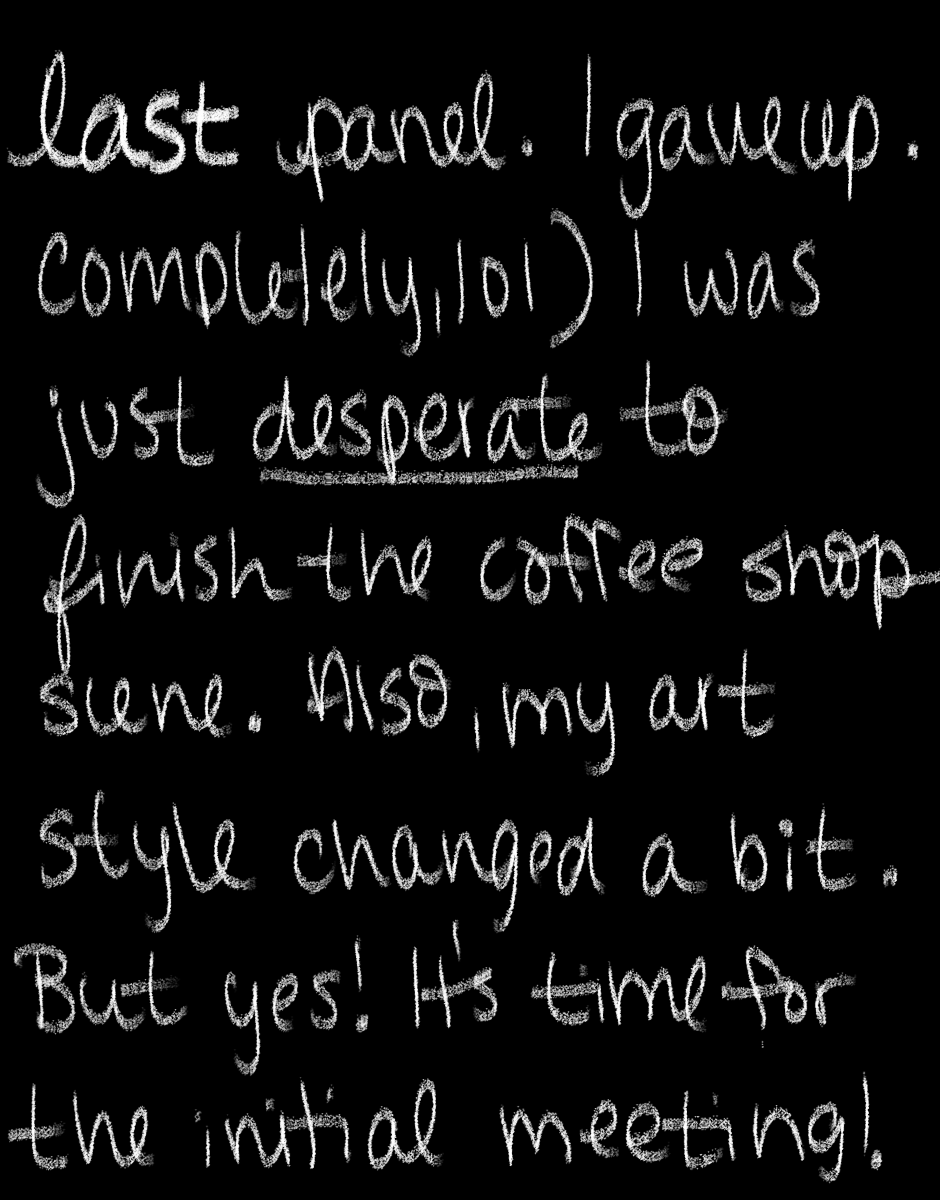 last panel. I gave up.
completely, lol) I was
just desperate to
finish the coffee shop
scene. Also, my art
style changed a bit.
But yes! It's time for
the initial meeting!